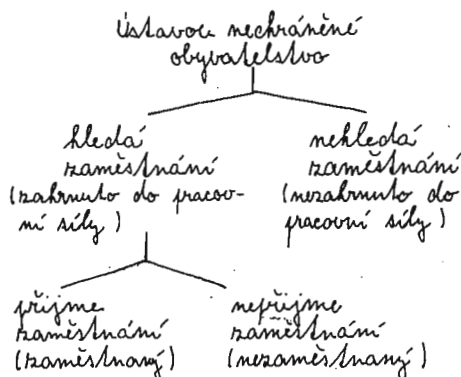 Ústavou nechráněné
obyvatelstvo
hledá
zaměstnání
(zahrnuto do pracov-
ní síly)
nehledá
zaměstnání
(nezahrnuto do
pracovní síly)
přijme
zaměstnání
(zaměstnaný)
nepřijme
zaměstnání
(nezaměstnaný)